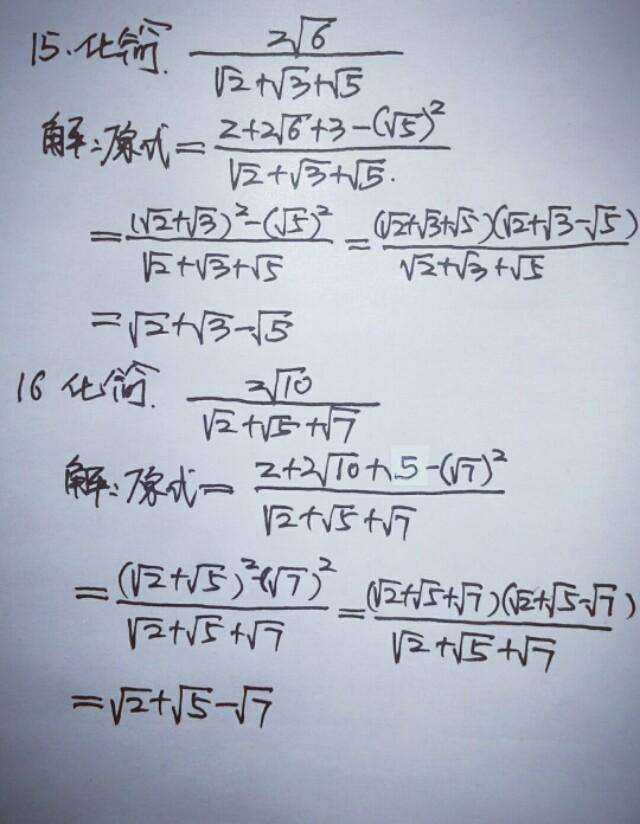 15. 化简. 2√6/(√2+√3+√5)
解:原式=(2+2√6+3-(√5)²)/(√2+√3+√5).
=((√2+√3)²-(√5)²)/(√2+√3+√5)=((√2+√3+√5)(√2+√3-√5))/(√2+√3+√5)
=√2+√3-√5
16 化简. 2√10/(√2+√5+√7)
解:原式=(2+2√10+5-(√7)²)/(√2+√5+√7)
=((√2+√5)²-(√7)²)/(√2+√5+√7)=((√2+√5+√7)(√2+√5-√7))/(√2+√5+√7)
=√2+√5-√7